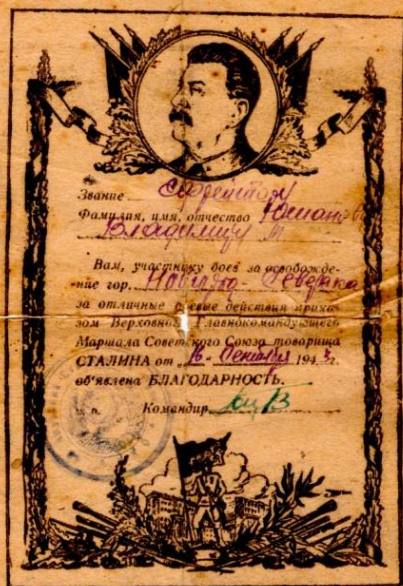 Звание Ефрейтору
Фамилия, имя, отчество
Владимиру М
Вам, участнику боев за освобожде-
ние гор. Новгород-Северска
за отличные боевые действия прика-
зом Верховного Главнокомандующего
Маршала Советского Союза товарища
СТАЛИНА от „16" Сентября 1943г.
об'явлена БЛАГОДАРНОСТЬ.
Командир